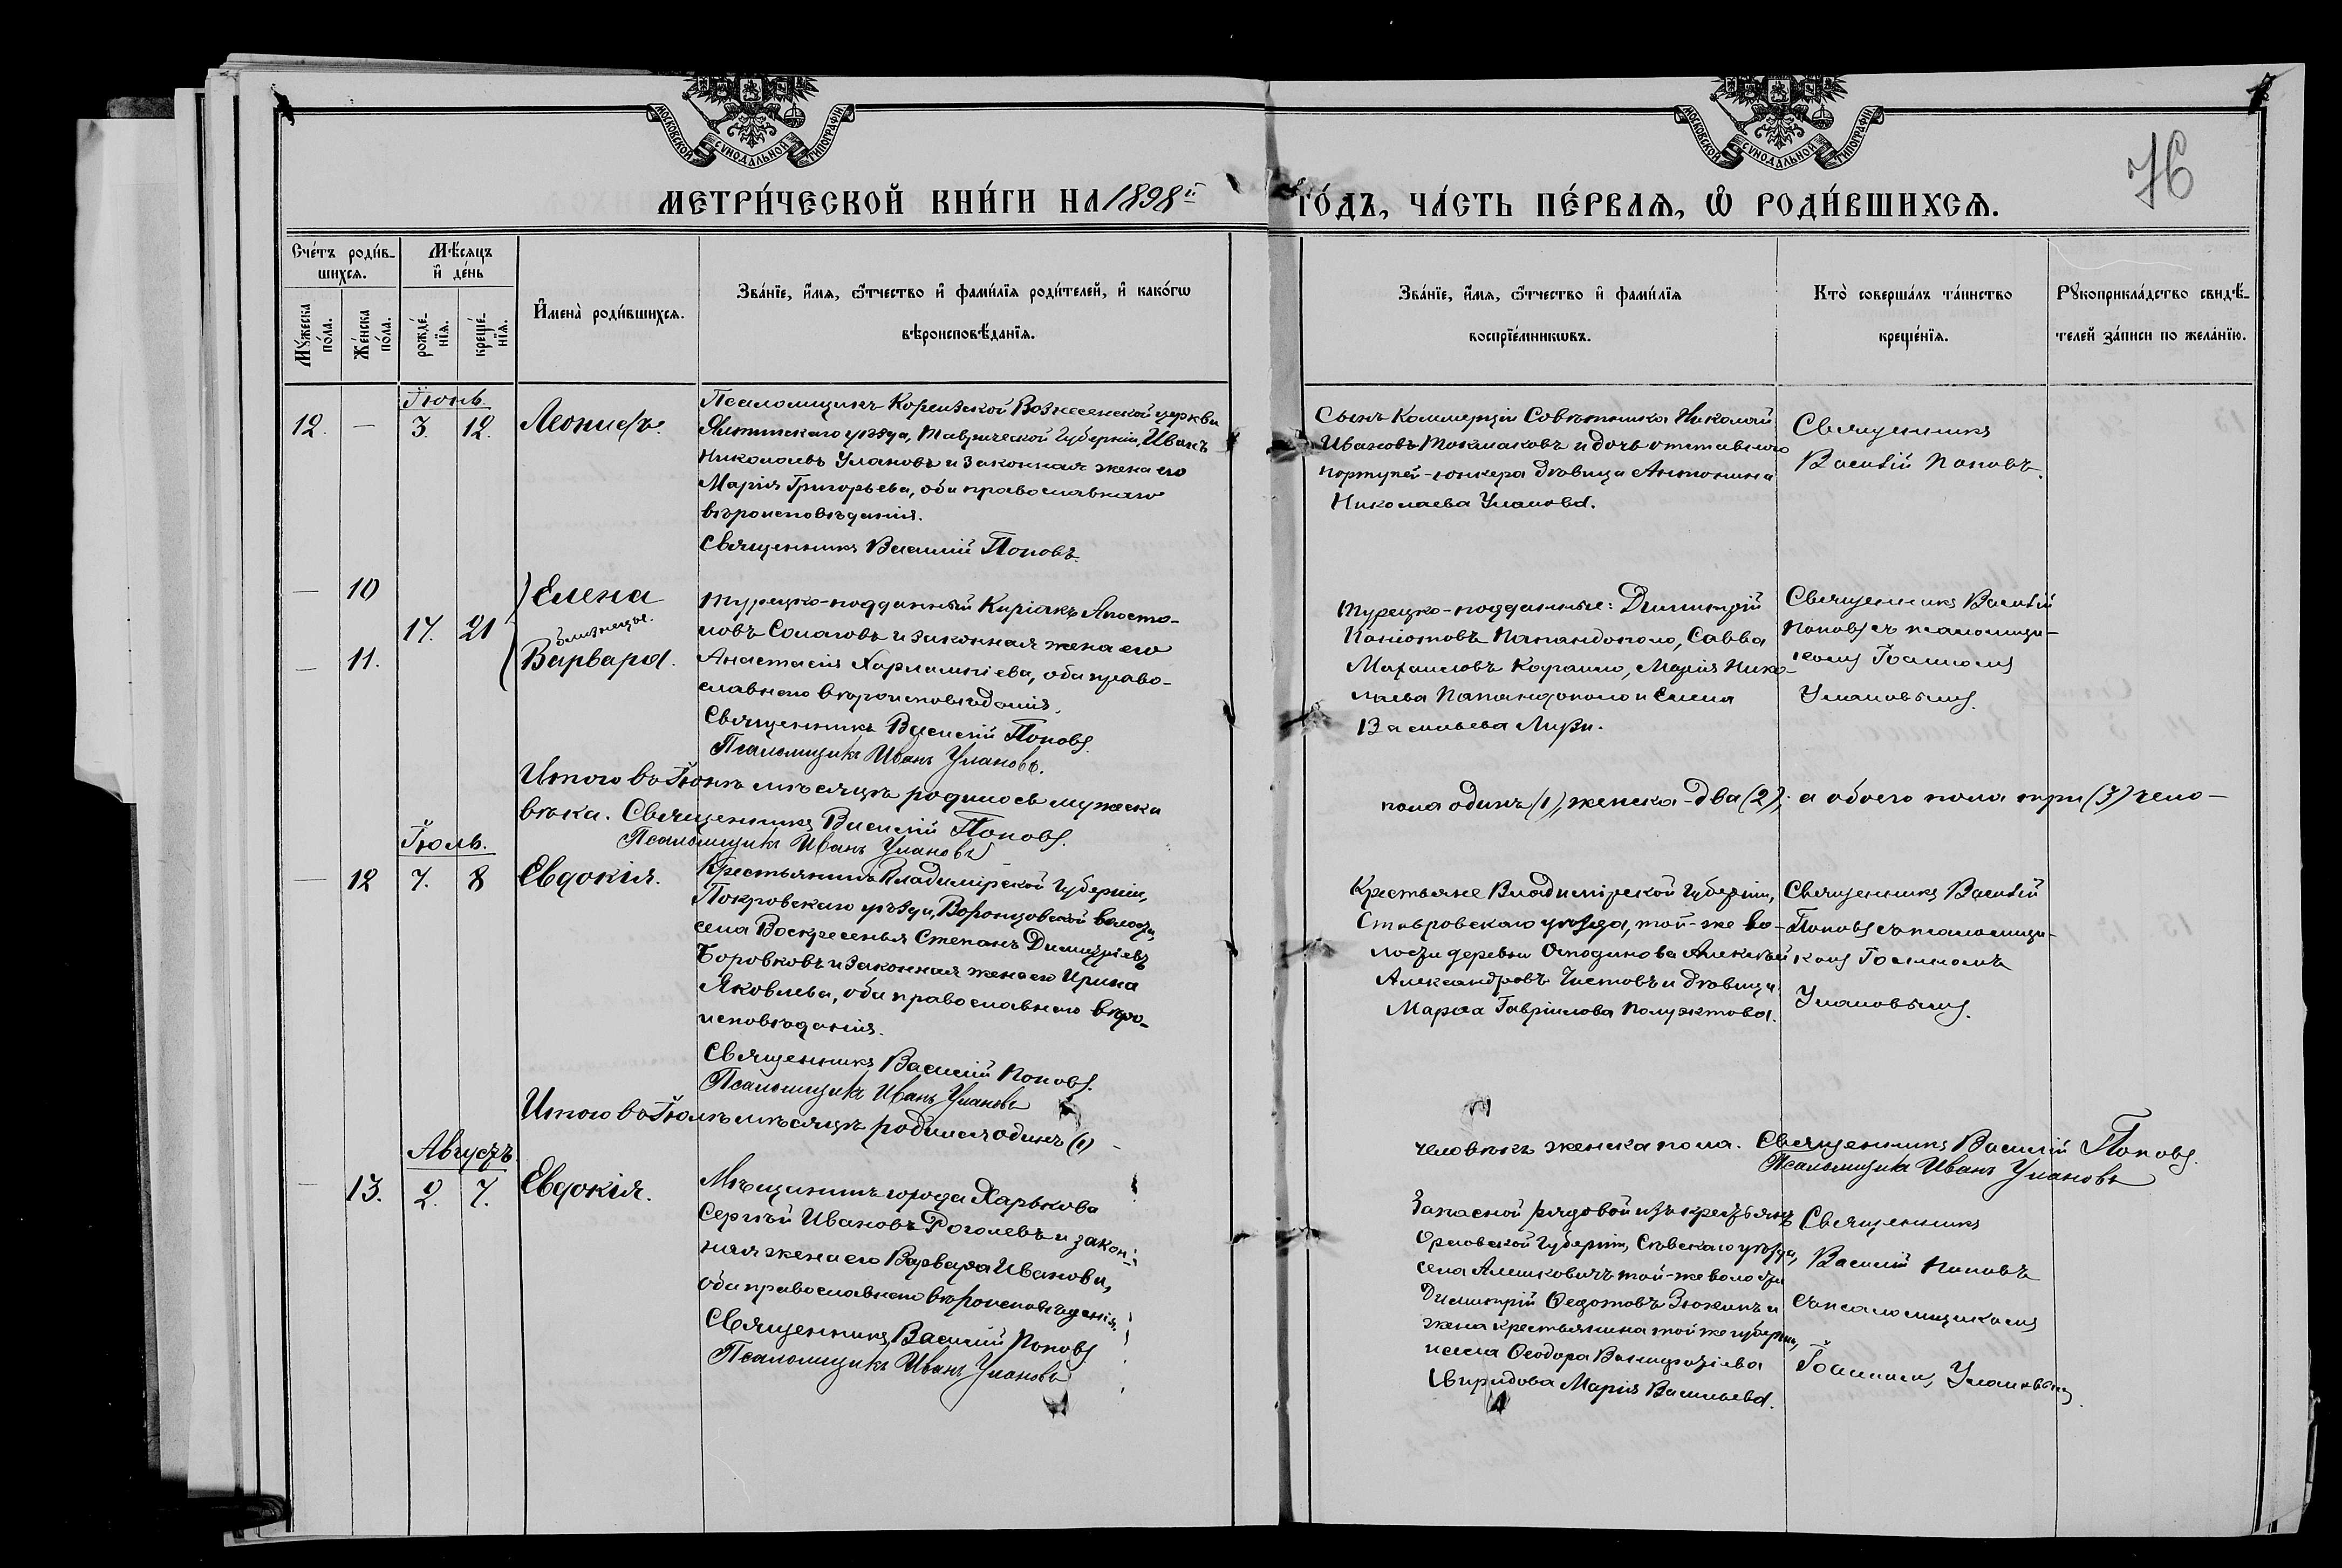 МОСКОВСКОЙ СѴНОДАЛЬНОЙ ТИПОГРАФІИ.
МОСКОВСКОЙ СѴНОДАЛЬНОЙ ТИПОГРАФІИ.
76
МЕТРИ́ЧЕСКОЙ КНИ́ГИ НА 1898й
ГО́ДЪ, ЧА́СТЬ ПЕ́РВАѦ, Ѡ РОДИ́ВШИХСѦ.
Сче́тъ роди́в-
шихсѧ.
Мꙋ́жеска по́ла.
Же́нска по́ла.
Мѣ́сѧцъ
и҆ де́нь
рожде́нїѧ.
креще́нїѧ.
И҆мена̀ роди́вшихсѧ.
Зва́нїе, и҆́мѧ, ѻ҆́тчество и҆ фами́лїѧ роди́телей, и҆ како́гѡ
вѣроисповѣ́данїѧ.
Зва́нїе, и҆́мѧ, ѻ҆́тчество и҆ фами́лїѧ
воспрїе́мникѡвъ.
Кто̀ соверша́лъ та́инство
креще́нїѧ.
Рꙋкоприкла́дство свидѣ́-
телей за́писи по жела́нїю.
Іюнь.
12. — 3. 12. Леонидъ.
Псаломщикъ Кореизской Вознесенской церкви
Ялтинскаго уѣзда, Таврической Губерніи, Иванъ
Николаевъ Улановъ и законная жена его
Марія Григорьева, оба православнаго
вѣроисповѣданія.
Священникъ Василій Поповъ
Сынъ Коммерціи Совѣтника Николай
Ивановъ Токмаковъ и дочь отставного
портупей-юнкера дѣвица Антонина
Николаева Уланова.
Священникъ
Василій Поповъ.
— 10
17. 21
— 11.
Елена
близнецы.
Варвара.
Турецко-подданный Киріакъ Апосто-
ловъ и законная жена его
Анастасія Харлампіева, оба право-
славнаго вѣроисповѣданія.
Священникъ Василій Поповъ.
Псаломщикъ Иванъ Улановъ.
Турецко-подданные: Димитрій
Панаіотовъ Папандополо, Савва
Михаиловъ Мария Нико-
лаева Папандополо и Елена
Васильева Лири.
Священникъ Василій
Поповъ съ псаломщи-
комъ Іоанномъ
Улановымъ.
Итого въ Іюнѣ мѣсяцѣ родилось мужеска
пола одинъ (1), женска - два (2), а обоего пола три (3) чело-
вѣка. Священникъ Василій Поповъ.
Псаломщикъ Иванъ Улановъ
Іюль.
— 12 7. 8 Евдокія.
Крестьянинъ Владимірской Губерніи,
Покровскаго уѣзда, Воронцовской волости,
села Воскресенья Степанъ Димитріевъ
Боровковъ и законная жена его Ирина
Яковлева, оба православнаго вѣро-
исповѣданія.
Священникъ Василій Поповъ.
Псаломщикъ Иванъ Улановъ
Крестьяне Владимірской Губерніи,
Ставровскаго уѣзда, той-же во-
лости деревни Алексѣй
Александровъ Чистовъ и дѣвица
Марѳа Гавріилова Полуектова.
Священникъ Василій
Поповъ съ псаломщи-
комъ Іоанномъ
Улановымъ.
Итого въ Іюлѣ мѣсяцѣ родился одинъ (1)
человѣкъ женска пола. Священникъ Василій Поповъ.
Псаломщикъ Иванъ Улановъ
Августъ.
— 13. 2. 7. Евдокія.
Мѣщанинъ города Харькова
Сергѣй Ивановъ Роголевъ и закон-
ная жена его Варвара Иванова,
оба православнаго вѣроисповѣданія.
Священникъ Василій Поповъ
Псаломщикъ Иванъ Улановъ
Запасной рядовой изъ крестьянъ
Орловской Губерніи, Сѣвскаго уѣзда,
села Алешковичъ той-же волости
Димитрій Ѳедотовъ Зюкинъ и
жена крестьянина той же губерніи,
Ѳеодора
Свиридова Марія Васильева.
Священникъ
Василій Поповъ
съ псаломщикомъ
Іоанномъ Улановымъ.